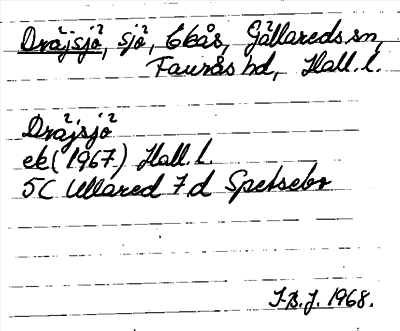 Dräjsjö, sjö, Ekås, Gällareds sn,
Faurås hd, Hall. l.
Dräjsjö
ek (1967) Hall. l.
5C Ullared 7d Spetsebo
J.B.J. 1968.